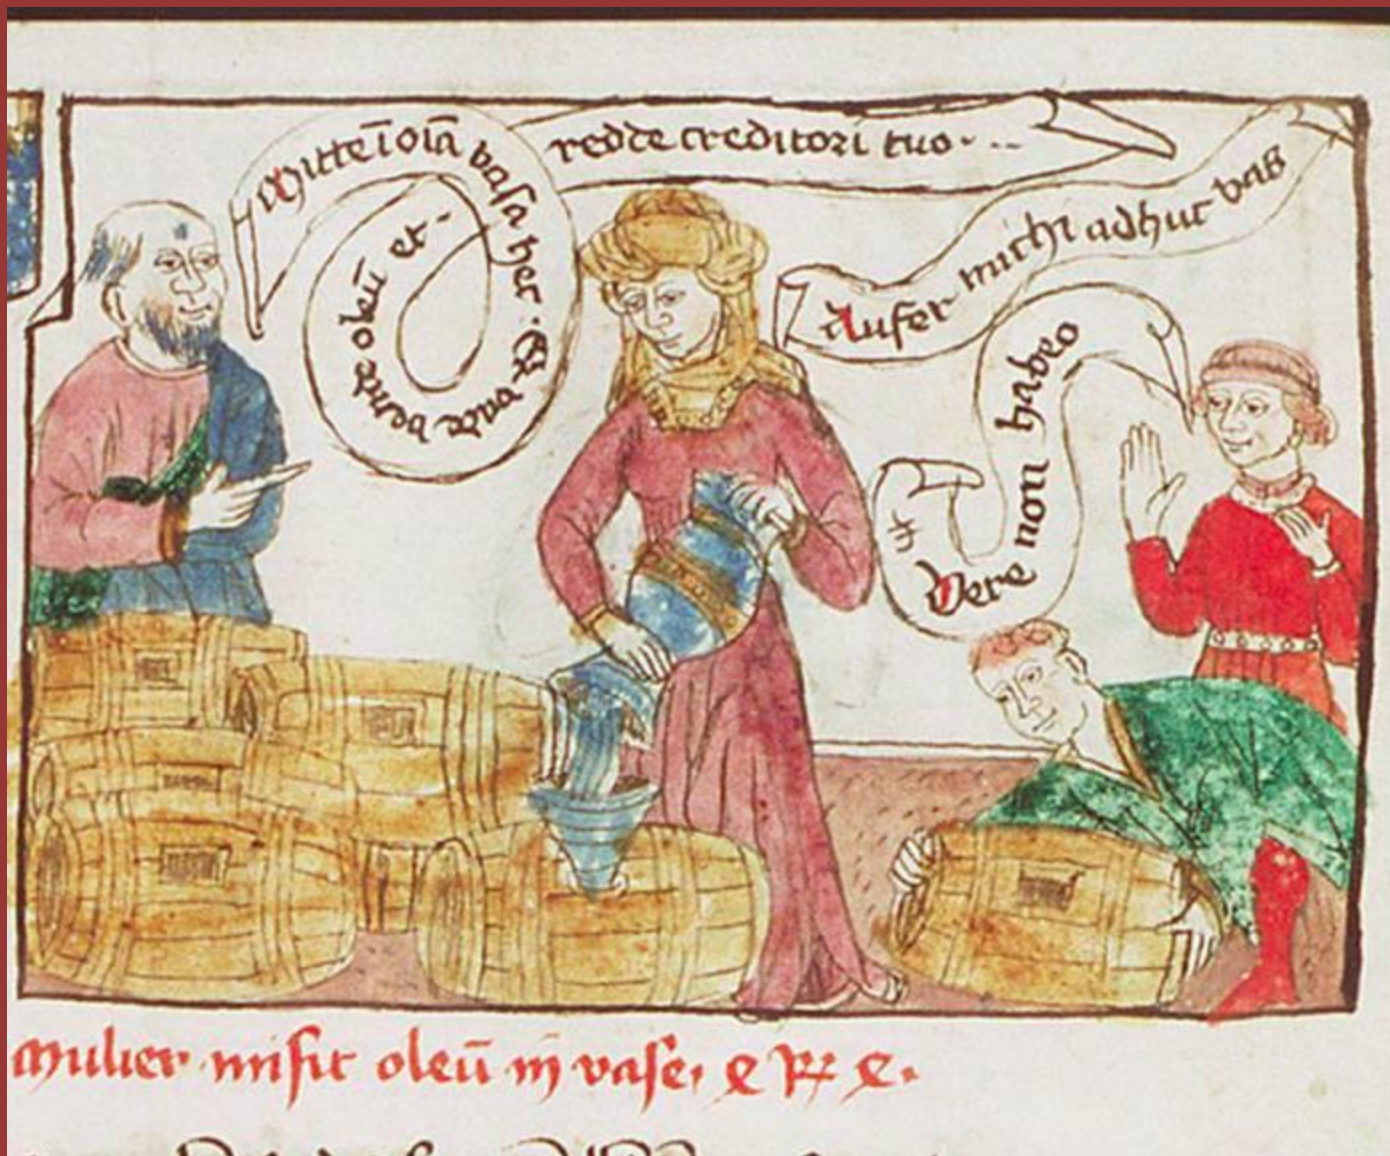 Mitte ī oīa vasa hec. Et vade vende oleū et
redde creditori tuo
Aufer michi adhuc vas
Vere non habeo
mulier misit oleū in vase,